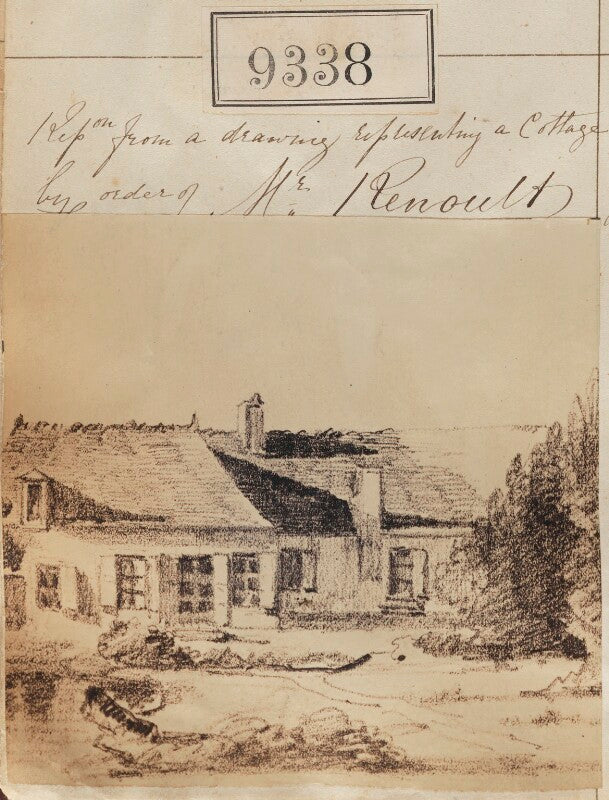 9338
Rep.on from a drawing representing a Cottage
by order of Mr. Renoult